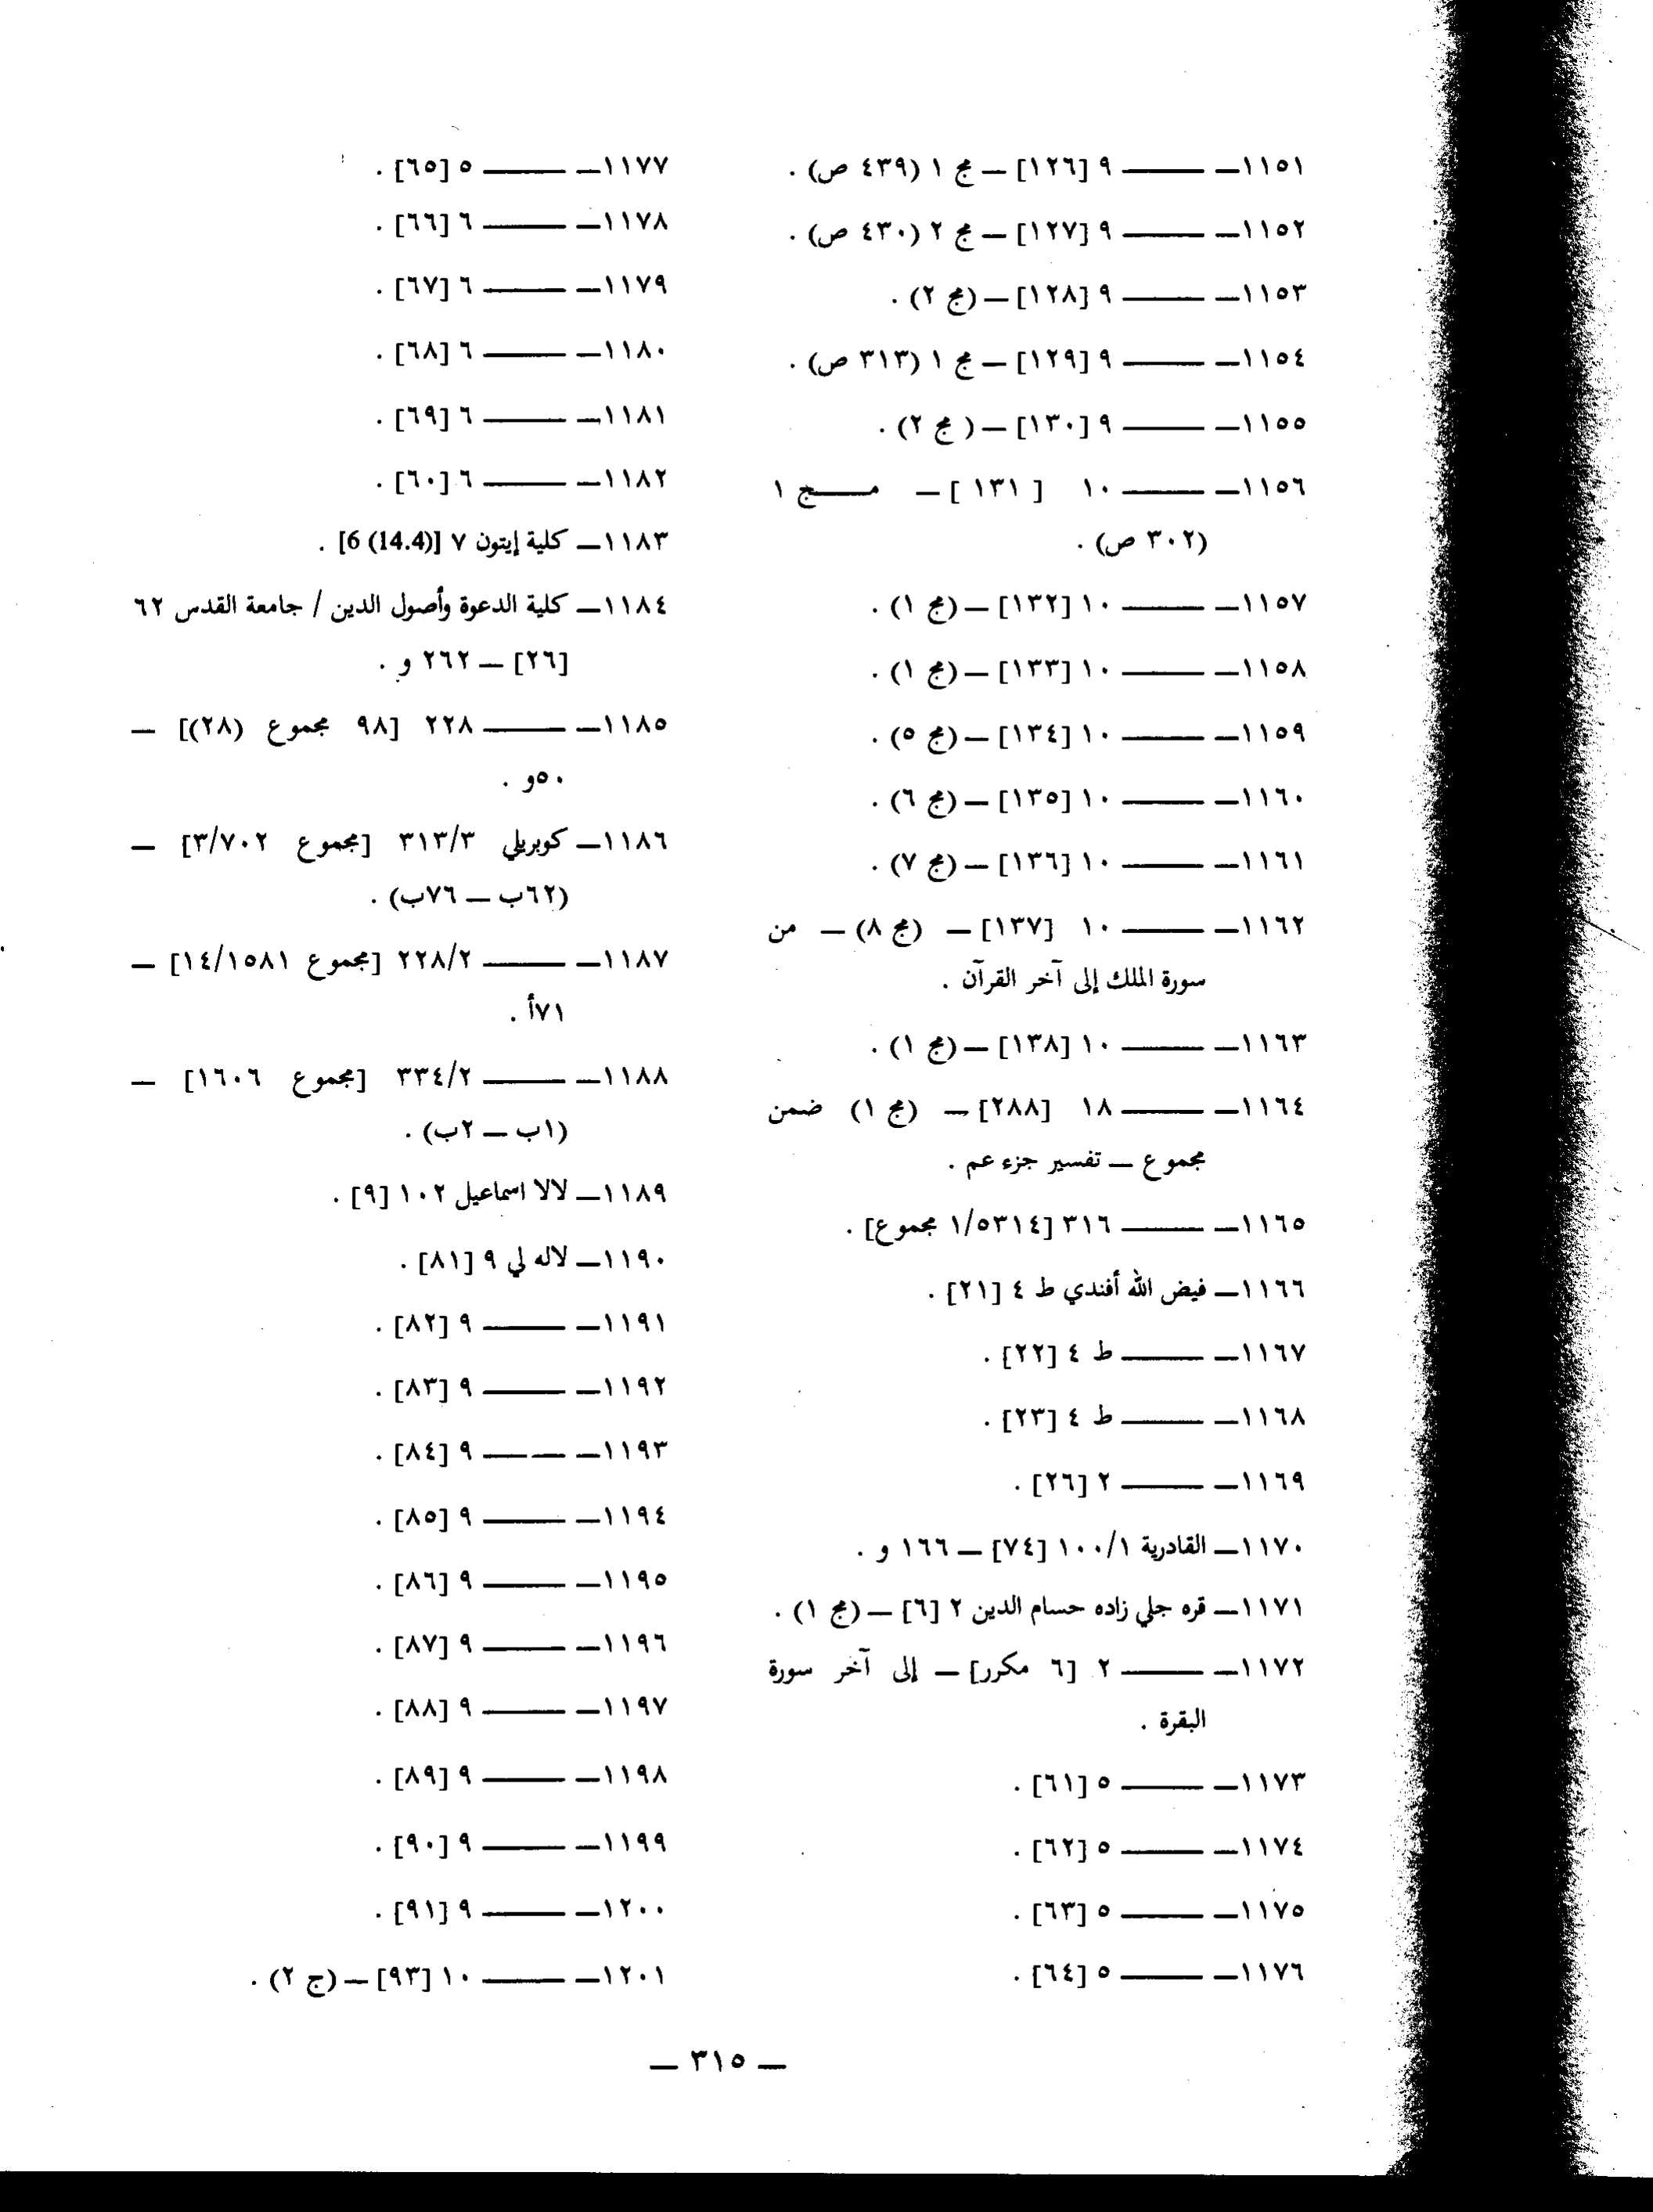 ١١٥١ــ ــــــــ ٩ [١٢٦] ــ مج ١ (٤٣٩ ص) .
١١٥٢ــ ــــــــ ٩ [١٢٧] ــ مج ٢ (٤٣٠ ص) .
١١٥٣ــ ــــــــ ٩ [١٢٨] ــ (مج ٢) .
١١٥٤ــ ــــــــ ٩ [١٢٩] ــ مج ١ (٣١٣ ص) .
١١٥٥ــ ــــــــ ٩ [١٣٠] ــ ( مج ٢) .
١١٥٦ــ ــــــــ ١٠ [ ١٣١ ] ــ مـــــج ١
(٣٠٢ ص) .
١١٥٧ــ ــــــــ ١٠ [١٣٢] ــ (مج ١) .
١١٥٨ــ ــــــــ ١٠ [١٣٣] ــ (مج ١) .
١١٥٩ــ ــــــــ ١٠ [١٣٤] ــ (مج ٥) .
١١٦٠ــ ــــــــ ١٠ [١٣٥] ــ (مج ٦) .
١١٦١ــ ــــــــ ١٠ [١٣٦] ــ (مج ٧) .
١١٦٢ــ ــــــــ ١٠ [١٣٧] ــ (مج ٨) ــ من
سورة الملك إلى آخر القرآن .
١١٦٣ــ ــــــــ ١٠ [١٣٨] ــ (مج ١) .
١١٦٤ــ ــــــــ ١٨ [٢٨٨] ــ (مج ١) ضمن
مجموع ــ تفسير جزء عم .
١١٦٥ــ ــــــــ ٣١٦ [١/٥٣١٤ مجموع] .
١١٦٦ــ فيض الله أفندي ط ٤ [٢١] .
١١٦٧ــ ــــــــ ط ٤ [٢٢] .
١١٦٨ــ ــــــــ ط ٤ [٢٣] .
١١٦٩ــ ــــــــ ٢ [٢٦] .
١١٧٠ــ القادرية ١٠٠/١ [٧٤] ــ ١٦٦ و .
١١٧١ــ قره جلي زاده حسام الدين ٢ [٦] ــ (مج ١) .
١١٧٢ــ ــــــــ ٢ [٦ مكرر] ــ إلى آخر سورة
البقرة .
١١٧٣ــ ــــــــ ٥ [٦١] .
١١٧٤ــ ــــــــ ٥ [٦٢] .
١١٧٥ــ ــــــــ ٥ [٦٣] .
١١٧٦ــ ــــــــ ٥ [٦٤] .
١١٧٧ــ ــــــــ ٥ [٦٥] .
١١٧٨ــ ــــــــ ٦ [٦٦] .
١١٧٩ــ ــــــــ ٦ [٦٧] .
١١٨٠ــ ــــــــ ٦ [٦٨] .
١١٨١ــ ــــــــ ٦ [٦٩] .
١١٨٢ــ ــــــــ ٦ [٦٠] .
١١٨٣ــ كلية إيتون ٧ [6 (14.4)] .
١١٨٤ــ كلية الدعوة وأصول الدين / جامعة القدس ٦٢
[٢٦] ــ ٢٦٢ و .
١١٨٥ــ ــــــــ ٢٢٨ [٩٨ مجموع (٢٨)] ــ
٥٠و .
١١٨٦ــ كوبريلي ٣١٣/٣ [مجموع ٣/٧٠٢] ــ
(٦٢ب ــ ٧٦ب) .
١١٨٧ــ ــــــــ ٢٢٨/٢ [مجموع ١٤/١٥٨١] ــ
٧١أ .
١١٨٨ــ ــــــــ ٣٣٤/٢ [مجموع ١٦٠٦] ــ
(١ب ــ ٢ب) .
١١٨٩ــ لالا اسماعيل ١٠٢ [٩] .
١١٩٠ــ لاله لي ٩ [٨١] .
١١٩١ــ ــــــــ ٩ [٨٢] .
١١٩٢ــ ــــــــ ٩ [٨٣] .
١١٩٣ــ ــــــــ ٩ [٨٤] .
١١٩٤ــ ــــــــ ٩ [٨٥] .
١١٩٥ــ ــــــــ ٩ [٨٦] .
١١٩٦ــ ــــــــ ٩ [٨٧] .
١١٩٧ــ ــــــــ ٩ [٨٨] .
١١٩٨ــ ــــــــ ٩ [٨٩] .
١١٩٩ــ ــــــــ ٩ [٩٠] .
١٢٠٠ــ ــــــــ ٩ [٩١] .
١٢٠١ــ ــــــــ ١٠ [٩٣] ــ (ج ٢) .
ــ ٣١٥ ــ